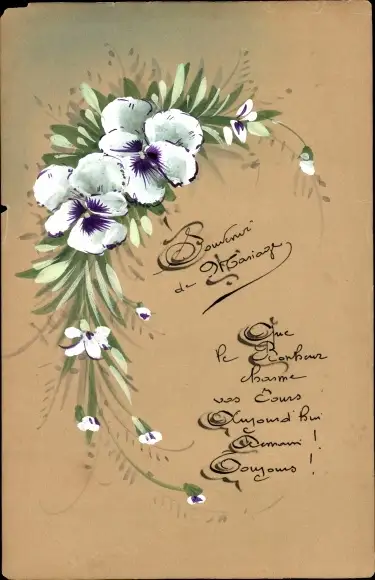 Souvenir
de Mariage
Que
le Bonheur
charme
vos Cours
Aujourd'hui
Demain !
Toujours !